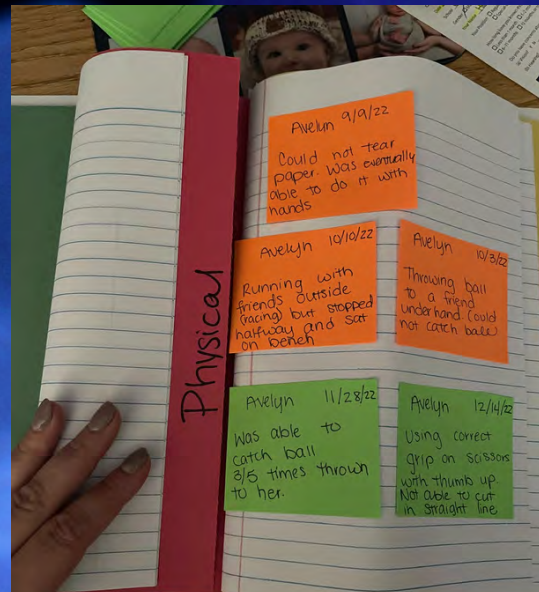 Physical
Avelyn 9/9/22
Could not tear
paper. Was eventually
able to do it with
hands
Avelyn 10/10/22
Running with
friends outside
(racing) but stopped
halfway and sat
on bench
Avelyn 10/3/22
Throwing ball
to a friend
underhand. Could
not catch ball
Avelyn 11/28/22
Was able to
catch ball
3/5 times thrown
to her.
Avelyn 12/14/22
Using correct
grip on scissors
with thumb up.
Not able to cut
in straight line